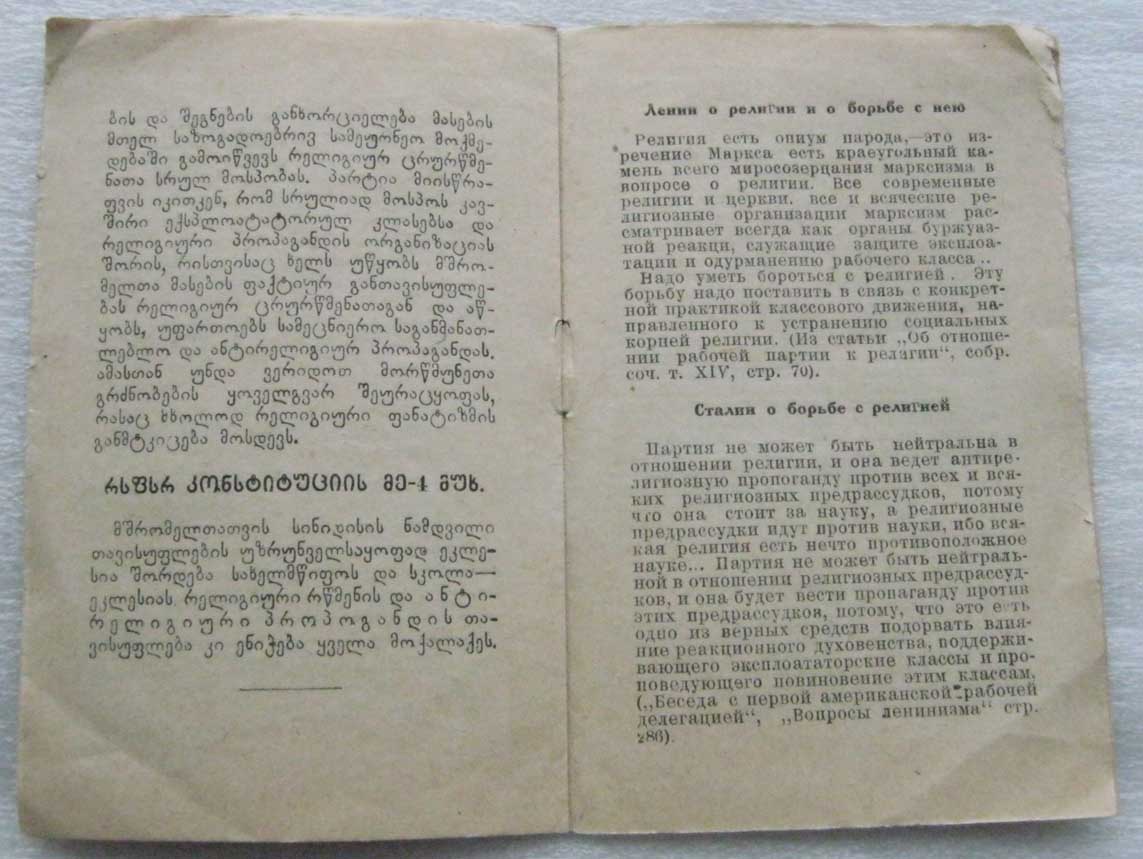 ბის და შეგნების განხორციელება მასების
მთელ საზოგადოებრივ სამეურნეო მოქმე-
დებაში გამოიწვევს რელიგიურ ცრურწმე-
ნათა სრულ მოსპობას. პარტია მიისწრა-
ფვის იკითკენ, რომ სრულიად მოსპოს კავ-
შირი ექსპლოატატორულ კლასებსა და
რელიგიური პროპაგანდის ორგანიზაციას
შორის, რისთვისაც ხელს უწყობს მშრო-
მელთა მასების ფაქტიურ განთავისუფლე-
ბას რელიგიურ ცრურწმენათაგან და აწ-
ყობს, უფართოებს სამეცნიერო საგანმანათ-
ლებლო და ანტირელიგიურ პროპაგანდას.
ამასთან უნდა ვერიდოთ მორწმუნეთა
გრძნობების ყოველგვარ შეურაცყოფას,
რასაც მხოლოდ რელიგიური ფანატიზმის
განმტკიცება მოსდევს.
რსფსრ კონსტიტუციის მე-4 მუხ.
მშრომელთათვის სინიდისის ნამდვილი
თავისუფლების უზრუნველსაყოფად ეკლე-
სია შორდება სახელმწიფოს და სკოლა—
ეკლესიას. რელიგიური რწმენის და ანტი-
რელიგიური პროპოგანდის თა-
ვისუფლება კი ენიჭება ყველა მოქალაქეს.
Ленин о религии и о борьбе с нею
Религия есть опиум народа,—это из-
речение Маркса есть краеугольный ка-
мень всего миросозерцания марксизма в
вопросе о религии. Все современные
религии и церкви. все и всяческие ре-
лигиозные организации марксизм рас-
сматривает всегда как органы буржуаз-
ной реакци, служащие защите эксплоа-
тации и одурманению рабочего класса..
Надо уметь бороться с религией. Эту
борьбу надо поставить в связь с конкрет-
ной практикой классового движения, на-
правленного к устранению социальных
корней религии. (Из статьи „Об отноше-
нии рабочей партии к религии“, собр.
соч. т. XIV, стр. 70).
Сталин о борьбе с религией
Партия не может быть нейтральна в
отношении религии, и она ведет антире-
лигиозную пропоганду против всех и вся-
ких религиозных предрассудков, потому
что она стоит за науку, а религиозные
предрассудки идут против науки, ибо вся-
кая религия есть нечто противоположное
науке... Партия не может быть нейтраль-
ной в отношении религиозных предрассуд-
ков, и она будет вести пропаганду против
этих предрассудков, потому, что это есть
одно из верных средств подорвать влия-
ние реакционного духовенства, поддержи-
вающего эксплоататорские классы и про-
поведующего повиновение этим классам.
(„Беседа с первой американской рабочей
делегацией“, „Вопросы ленинизма“ стр.
286).